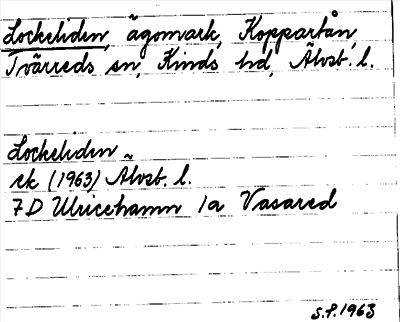 Lockeliden, ägomark, Koppartån,
Tvärreds sn, Kinds hd, Älvsb. l.
Lockeliden
ek (1963) Älvsb. l.
7D Ulricehamn 1a Vasared
S.P. 1963